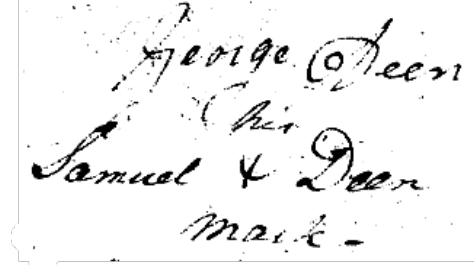 George Deen
his
Samuel X Deen
mark-